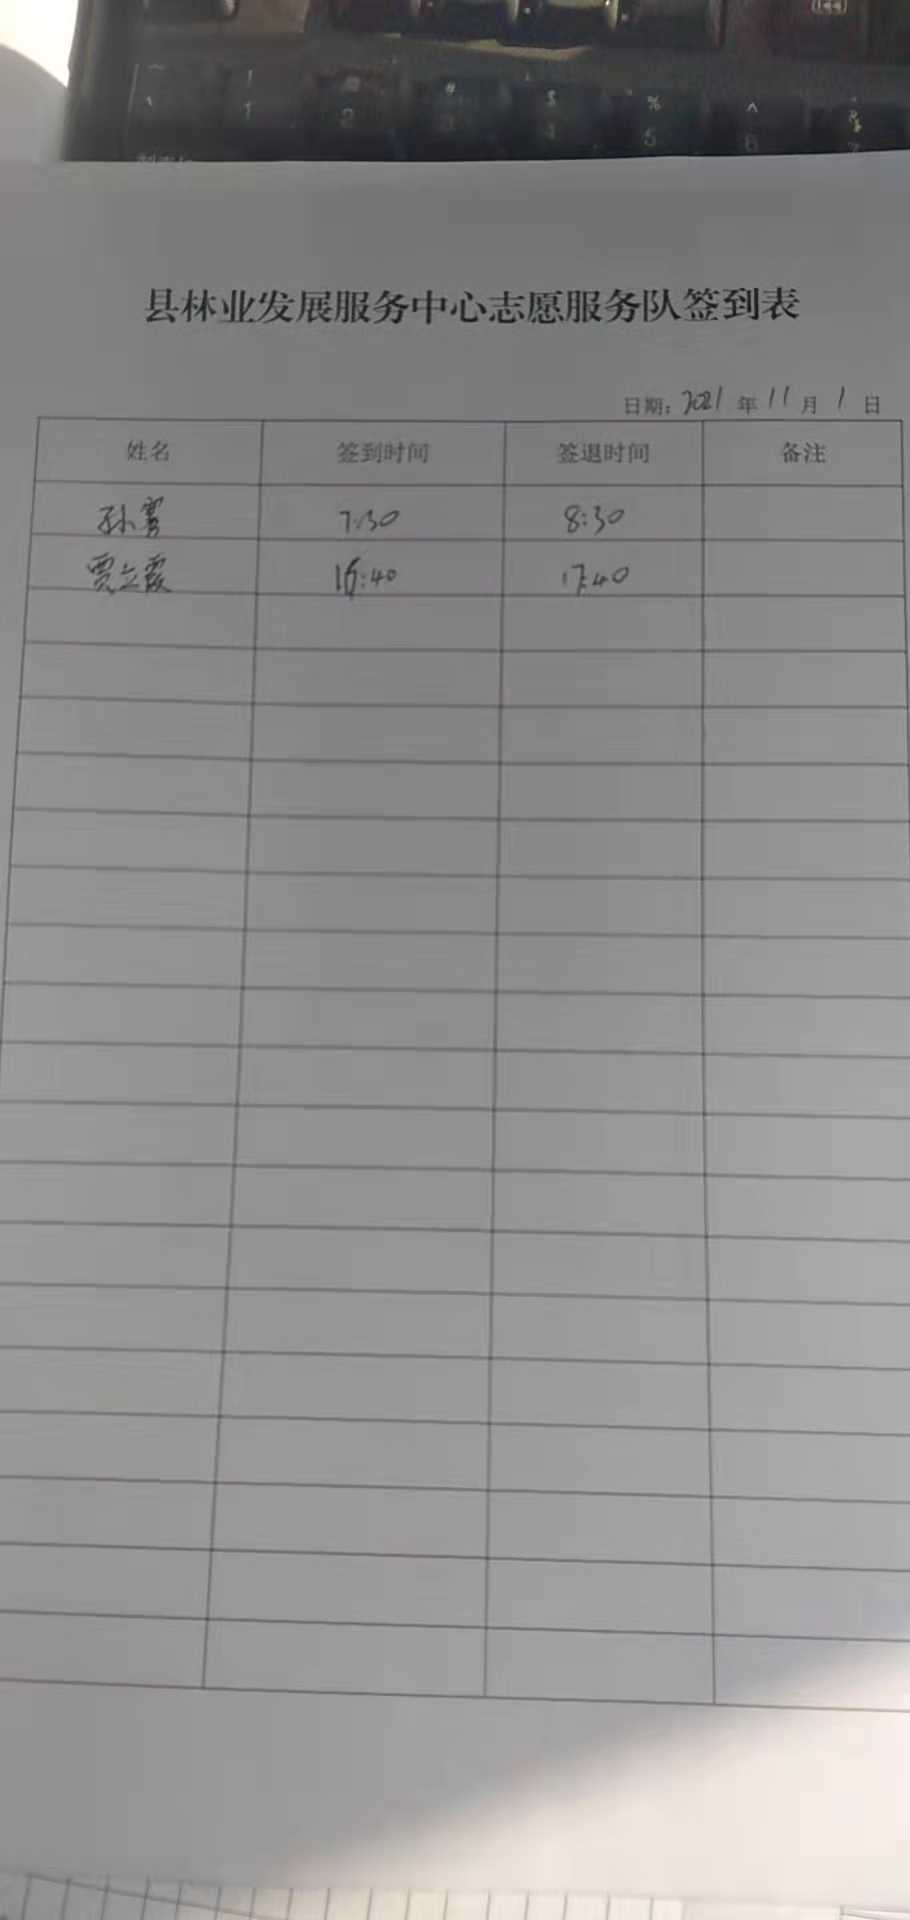 县林业发展服务中心志愿服务队签到表
日期：2021年11月1日
姓名 签到时间 签退时间 备注
孙雪 7:30 8:30
贾立霞 16:40 17:40